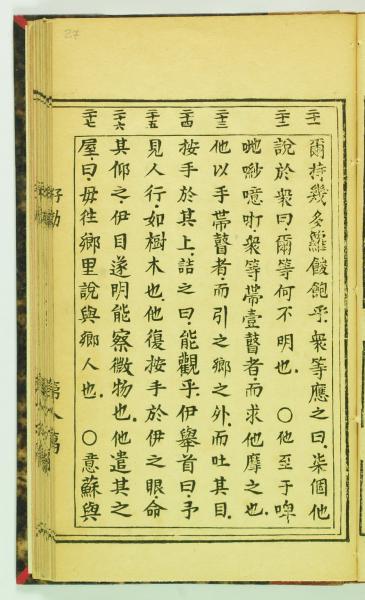 27
二十一
二十二
二十三
二十四
二十五
二十六
二十七
爾持幾多籮餕飽乎.衆等應之曰.柒個他
說於衆曰.爾等何不明也.〇他至于啤
衆等帶壹瞽者.而求他摩之也.
他以手帶瞽者.而引之鄉之外.而吐其目.
按手於其上.詰之曰.能觀乎.伊舉首曰.予
見人行.如樹木也.他復按手於伊之眼.命
其仰之.伊目遂明能察微物也.他遣其之
屋.曰.毋往鄉里說與鄉人也.〇意蘇與